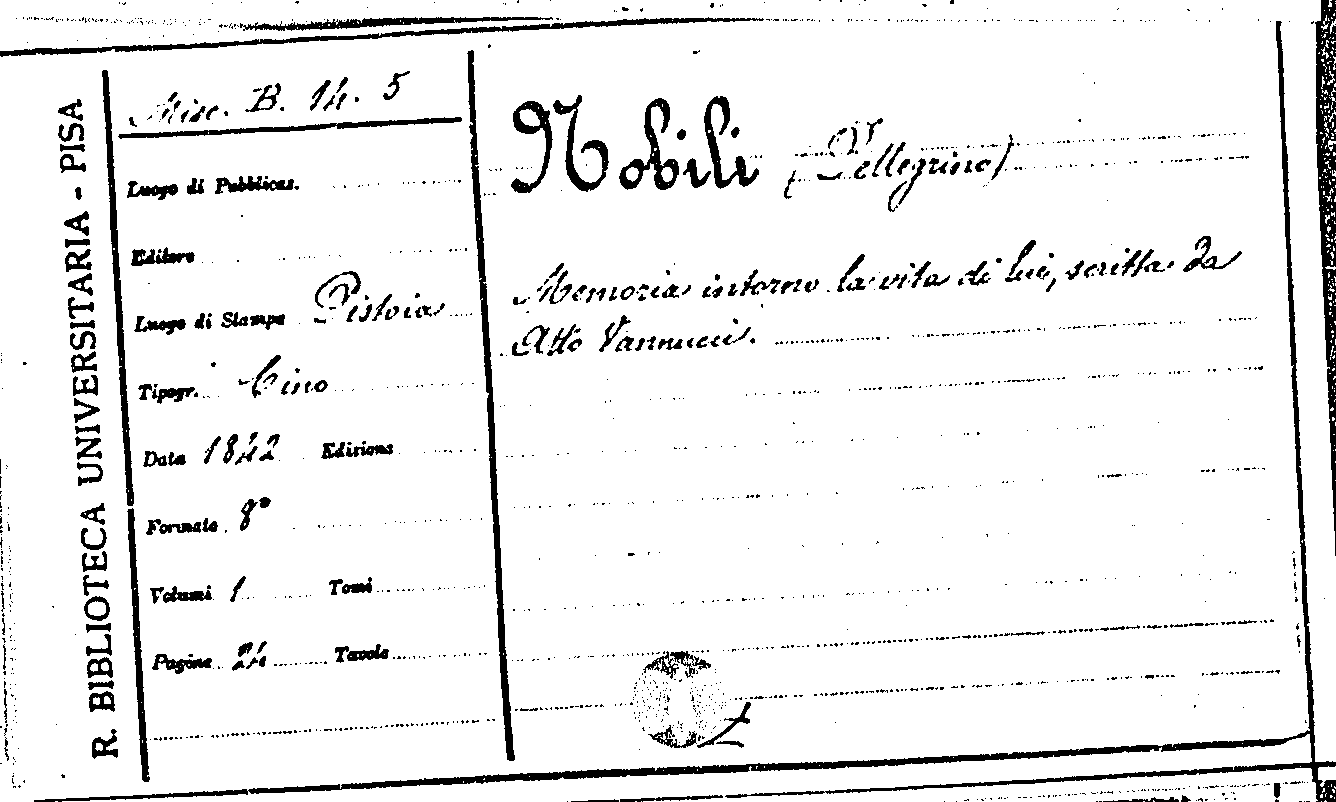 R. BIBLIOTECA UNIVERSITARIA - PISA
Misc. B. 14. 5
Luogo di Pubblicaz.
Editore
Luogo di Stampa Pistoia
Tipogr. Cino
Data 1842 Edizione
Formato 8°
Volumi 1 Tomi
Pagine 24 Tavole
Nobili (Pellegrino)
Memoria intorno la vita di lui, scritta da
Atto Vannucci.